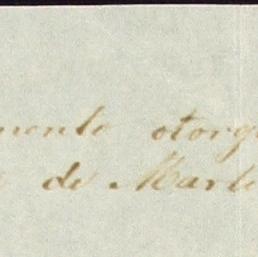 mento otorg
de Marti